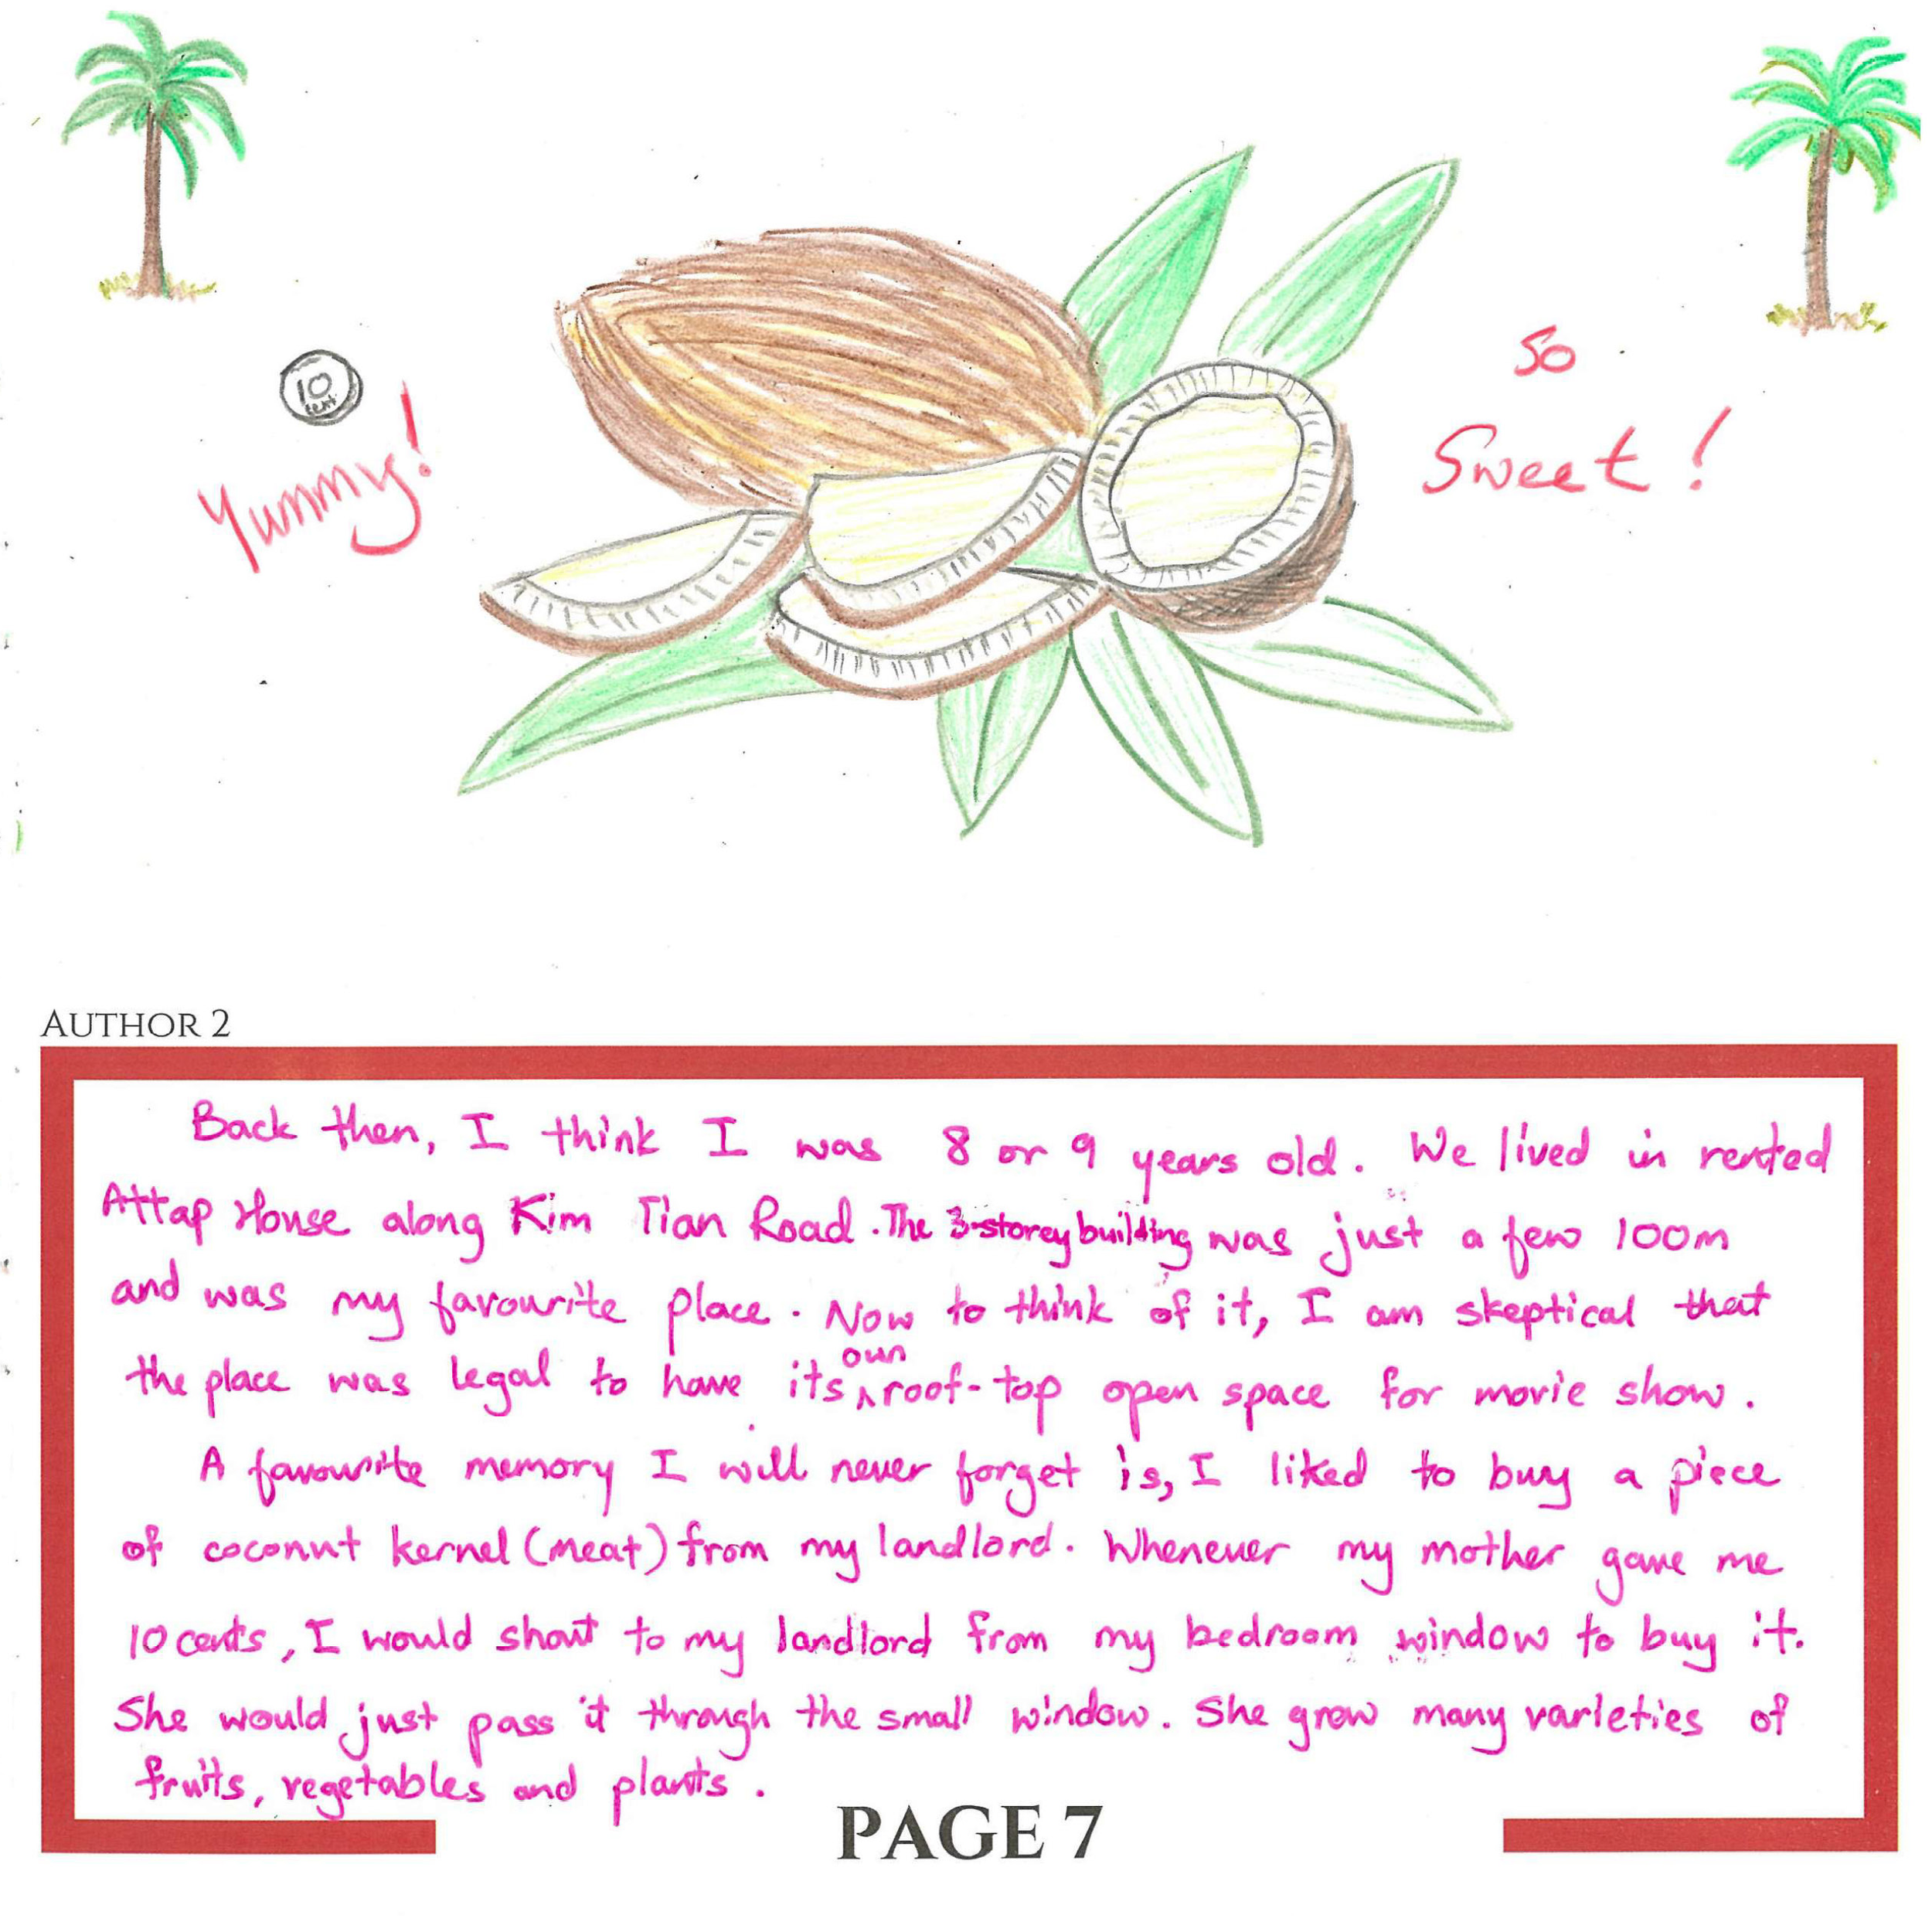 10
cent
Yummy!
So
Sweet!
AUTHOR 2
Back then, I think I was 8 or 9 years old. We lived in rented
Attap House along Kim Tian Road. The 3-storey building was just a few 100m
and was my favourite place. Now to think of it, I am skeptical that
the place was legal to have its own roof-top open space for movie show.
A favourite memory I will never forget is, I liked to buy a piece
of coconut kernel (meat) from my landlord. Whenever my mother gave me
10 cents, I would shout to my landlord from my bedroom window to buy it.
She would just pass it through the small window. She grow many varieties of
fruits, vegetables and plants.
PAGE 7